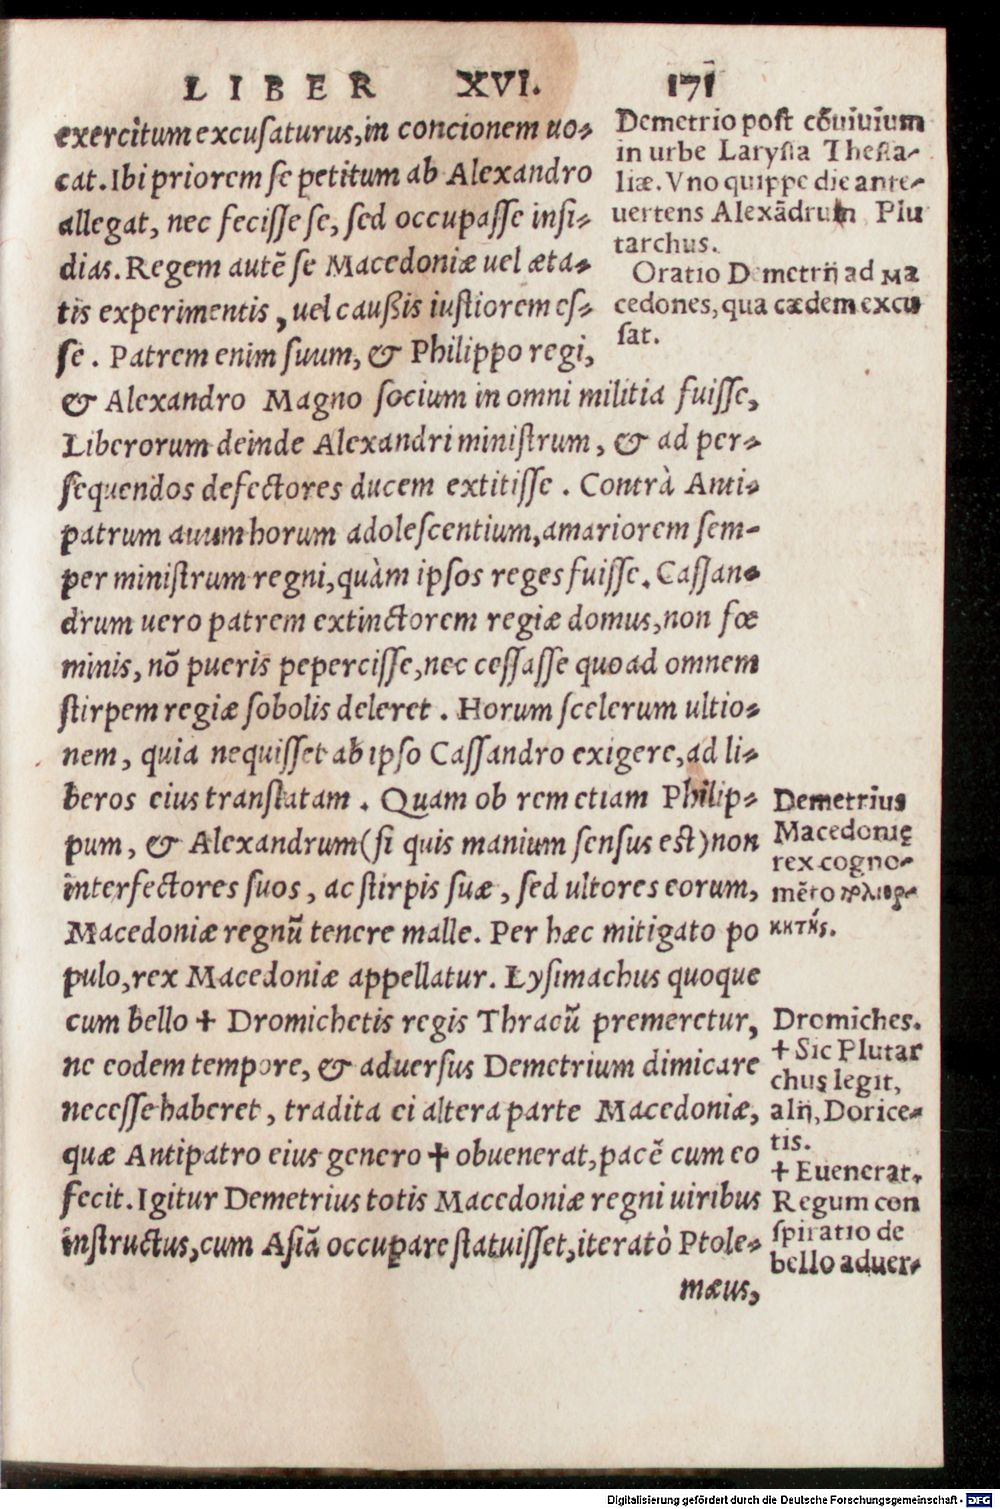 LIBER XVI. 171
exercitum excusaturus, in concionem uo-
cat. Ibi priorem se petitum ab Alexandro
allegat, nec fecisse se, sed occupasse insi-
dias. Regem autẽ se Macedoniæ uel æta-
tis experimentis, uel caußis iustiorem es-
se. Patrem enim suum, & Philippo regi,
& Alexandro Magno socium in omni militia fuisse,
Liberorum deinde Alexandri ministrum, & ad per-
sequendos defectores ducem extitisse. Contrà Anti-
patrum auum horum adolescentium, amariorem sem-
per ministrum regni, quàm ipsos reges fuisse. Cassan-
drum uero patrem extinctorem regiæ domus, non fœ
minis, nõ pueris pepercisse, nec cessasse quoad omnem
stirpem regiæ sobolis deleret. Horum scelerum ultio-
nem, quia nequisset ab ipso Cassandro exigere, ad li-
beros eius translatam. Quam ob rem etiam Philip-
pum, & Alexandrum (si quis manium sensus est) non
interfectores suos, ac stirpis suæ, sed ultores eorum,
Macedoniæ regnũ tenere malle. Per hæc mitigato po
pulo, rex Macedoniæ appellatur. Lysimachus quoque
cum bello + Dromichetis regis Thracũ premeretur,
ne eodem tempore, & aduersus Demetrium dimicare
necesse haberet, tradita ei altera parte Macedoniæ,
quæ Antipatro eius genero + obuenerat, pacẽ cum eo
fecit. Igitur Demetrius totis Macedoniæ regni uiribus
instructus, cum Asiã occupare statuisset, iteratò Ptole-
mæus,
Demetrio post cõuiuium
in urbe Laryssa Thessa-
liæ. Vno quippe die ante-
uertens Alexãdrum Plu
tarchus.
Oratio Demetrij ad Ma
cedones, qua cædem excu
sat.
Demetrius
Macedonię
rex cogno-
mẽto πολιορ-
κητής.
Dromiches.
+ Sic Plutar
chus legit,
alij, Dorice-
tis.
+ Euenerat.
Regum con
spiratio de
bello aduer-
Digitalisierung gefördert durch die Deutsche Forschungsgemeinschaft - DFG